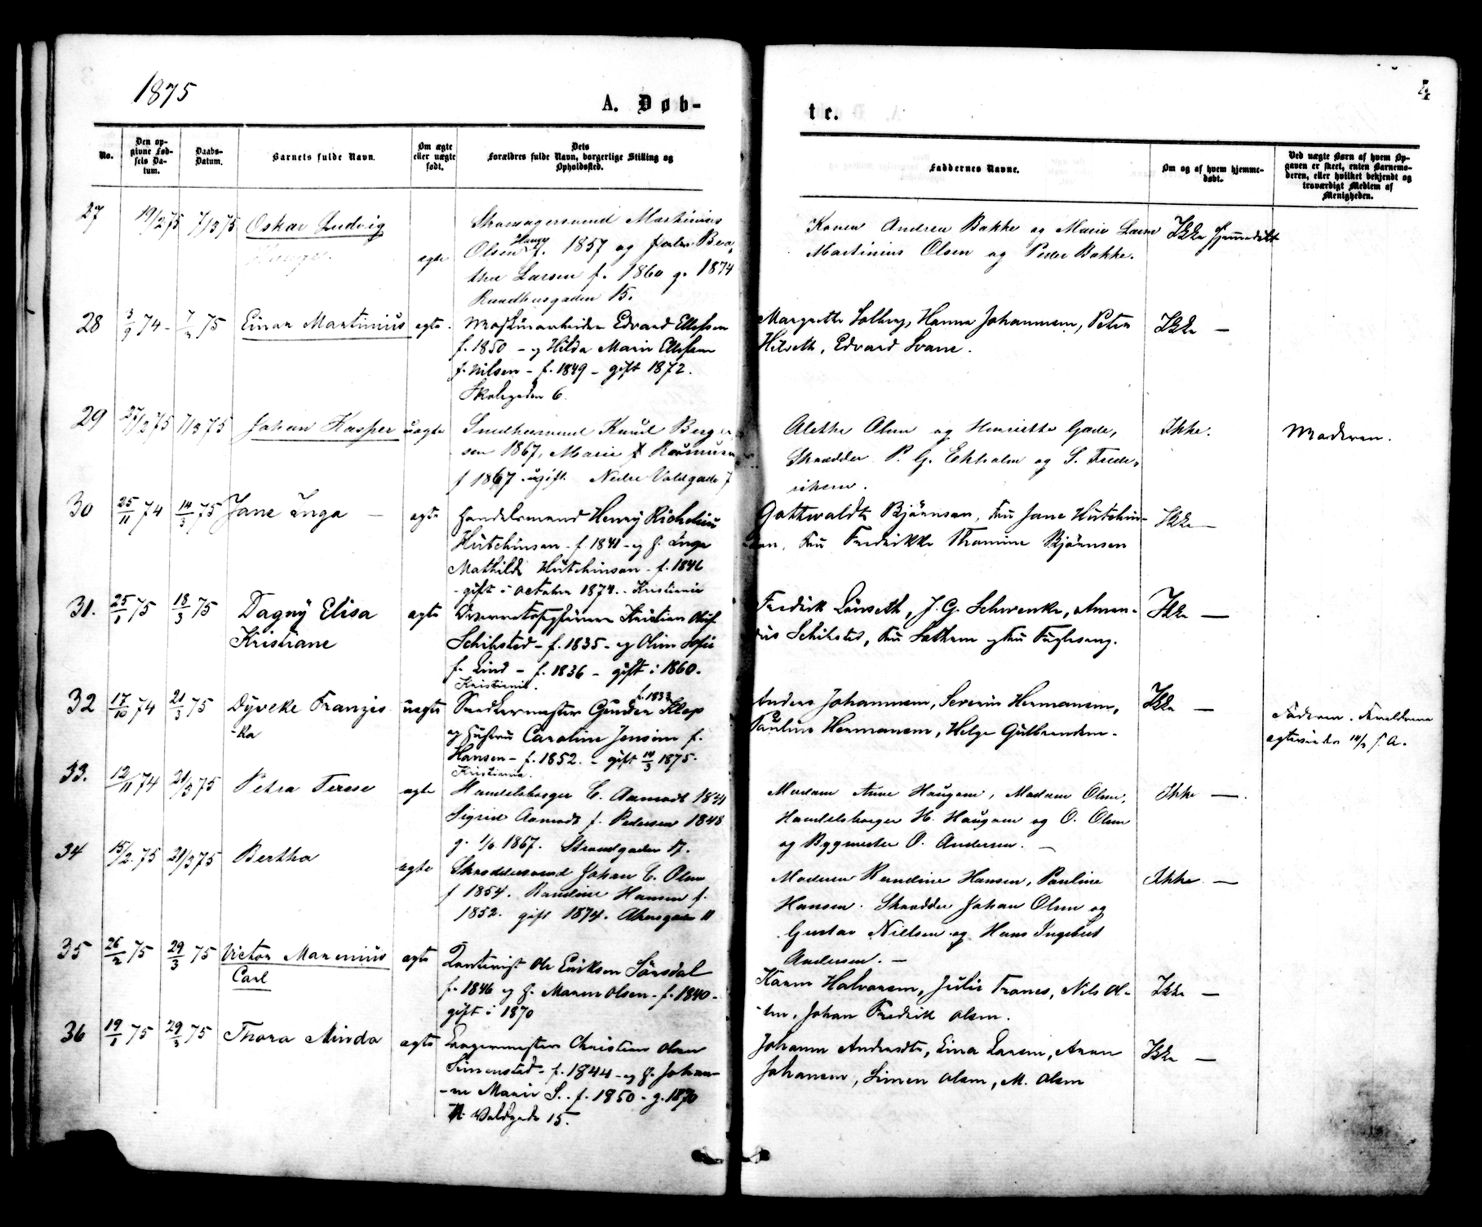 1875
4
A. Døb-
te.
No.
Den op-
givne Fød-
sels Da-
tum.
Daabs-
Datum.
Barnets fulde Navn.
Om ægte
eller uægte
født.
Dets
Forældres fulde Navn, borgerlige Stilling og
Opholdssted.
Faddernes Navne.
Om og af hvem hjemme-
døbt.
Ved uægte Børn af hvem Op-
gaven er skeet, enten Barnemo-
deren, eller hvilket bekjendt og
troværdigt Medlem af
Menigheden.
27
19/2 75
7/3 75
Oskar Ludvig
Hauge
egte
Martinius
Olsen Hauge f. 1857 og
Larsen f. 1860 g. 1874
Raadhusgaden 15.
Karen Andrea Bakke og Marie Larsen
Martinius Olsen og Peder Bakke.
Ikke hjemmedøbt
28
3/9 74
7/2 75
Einar Martinius
egte
Edvard Ellefsen
f. 1850 - og Hilda Marie Ellefsen
f. Nilsen - f. 1849 - gift 1872.
Skolegaden 6.
Margrethe Solberg, Hanna Johannesen, Peter
Hilseth, Edvard Svane.
Ikke —
29
27/2 75
7/3 75
Johan Kasper
uegte
Knud Berg
sen 1867, Marie Rasmusen
f 1867 ugift. Nedre Voldgade 7
Alethe Olsen og Henriette Gade,
Skrædder P. G. Ekholm og S. Frede-
riksen.
Ikke.
Moderen.
30
25/11 74
14/3 75
Jane Inga —
egte
Handelsmand Henry Richelieu
Hutchinson - f. 1841 - og h. Inga
Mathilde Hutchinson - f. 1846
gift i october 1874. Kristiania
Gottwaldt Bjørnsen, Fru Jane Hutchin-
son, Fru Fredrikke Thomine Bjørnsen
Ikke —
31.
25/1 75
18/3 75
Dagny Elisa
Kristiane
egte
Kristian Oluf
Schibsted - f. 1835 - og Oline Sofie
f. Lind - f. 1836 - gift i 1860.
Kristiania.
Fredrik Lønseth, J. G. Schwenke, Aman-
dus Schibsted, Fru Sethern og Fru Fuglesang.
Ikke —
32
17/10 74
21/3 75
Dyveke Franzis
-ka
uegte
f. 1832
Snedkermester Gunder Klep
og Hustru Caroline Jensine f.
Hansen - f. 1852. - gift 14/3 1875.
Kristiania.
Anders Johannesen, Severin Hermansen,
Pauline Hermansen, Helge Gulbrandsen.
Ikke —
Faderen. Forældrene
33.
12/11 74
21/3 75
Petra Terese
egte
Handelsborger C. Aamodt 1844
Sigrid Aamodt f. Pedersen 1848
g. 1867. Strandgaden 17.
Madam Anne Haugen, Madam Olsen,
Handelsborger H. Haugen og O. Olsen
og Bygmester O. Andersen. —
Ikke —
34
15/2 75
21/3 75
Bertha
egte
Skræddersvend Johan C. Olsen
f 1854. Randine Hansen f.
1852. gift 1874. Akersgaden 11
Madam Randine Hansen, Pauline
Hansen. Skrædder Johan Olsen og
Gustav Nielsen og Hans Ingebret
Andersen. —
Ikke —
35
26/2 75
29/3 75
Victor Marenius
Carl
egte
Ole Eriksen Sørsdal
f. 1846 og h. Maren Olsen - f. 1840 -
gift i 1870
Karen Halvorsen, Julie Franes, Nils Ol-
sen, Johan Fredrik Olsen.
Ikke —
36
19/1 75
29/3 75
Thora Minda
egte
Lagermester Christian Olsen
Simensted - f. 1844 - og h. Johan-
-ne Marie S. - f. 1850 - g. 1870
N. Voldgade 15.
Johanne Andersdtr, Lina Larsen, Aron
Johansen, Simen Olsen, M. Olsen
Ikke —